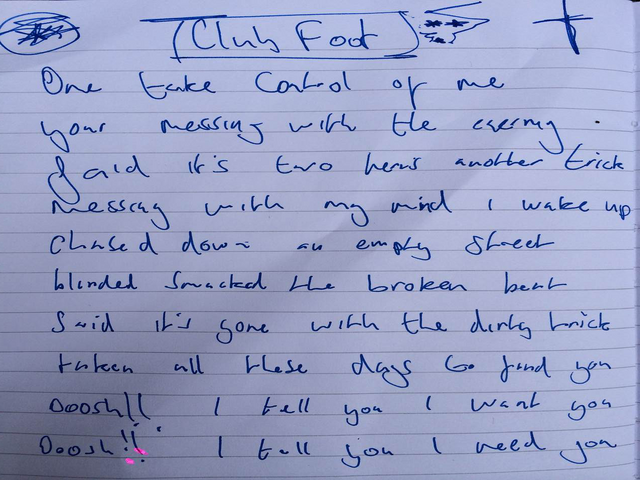 Club Foot
One take Control of me
your messing with the enemy.
Said it's two hers another trick
Messing with my mind I wake up
Chased down an empty street
blinded Smacked the broken beat
Said it's gone with the dirty trick
taken all these days to find you
Ooosh!! I tell you I want you
Ooosh!! I tell you I need you